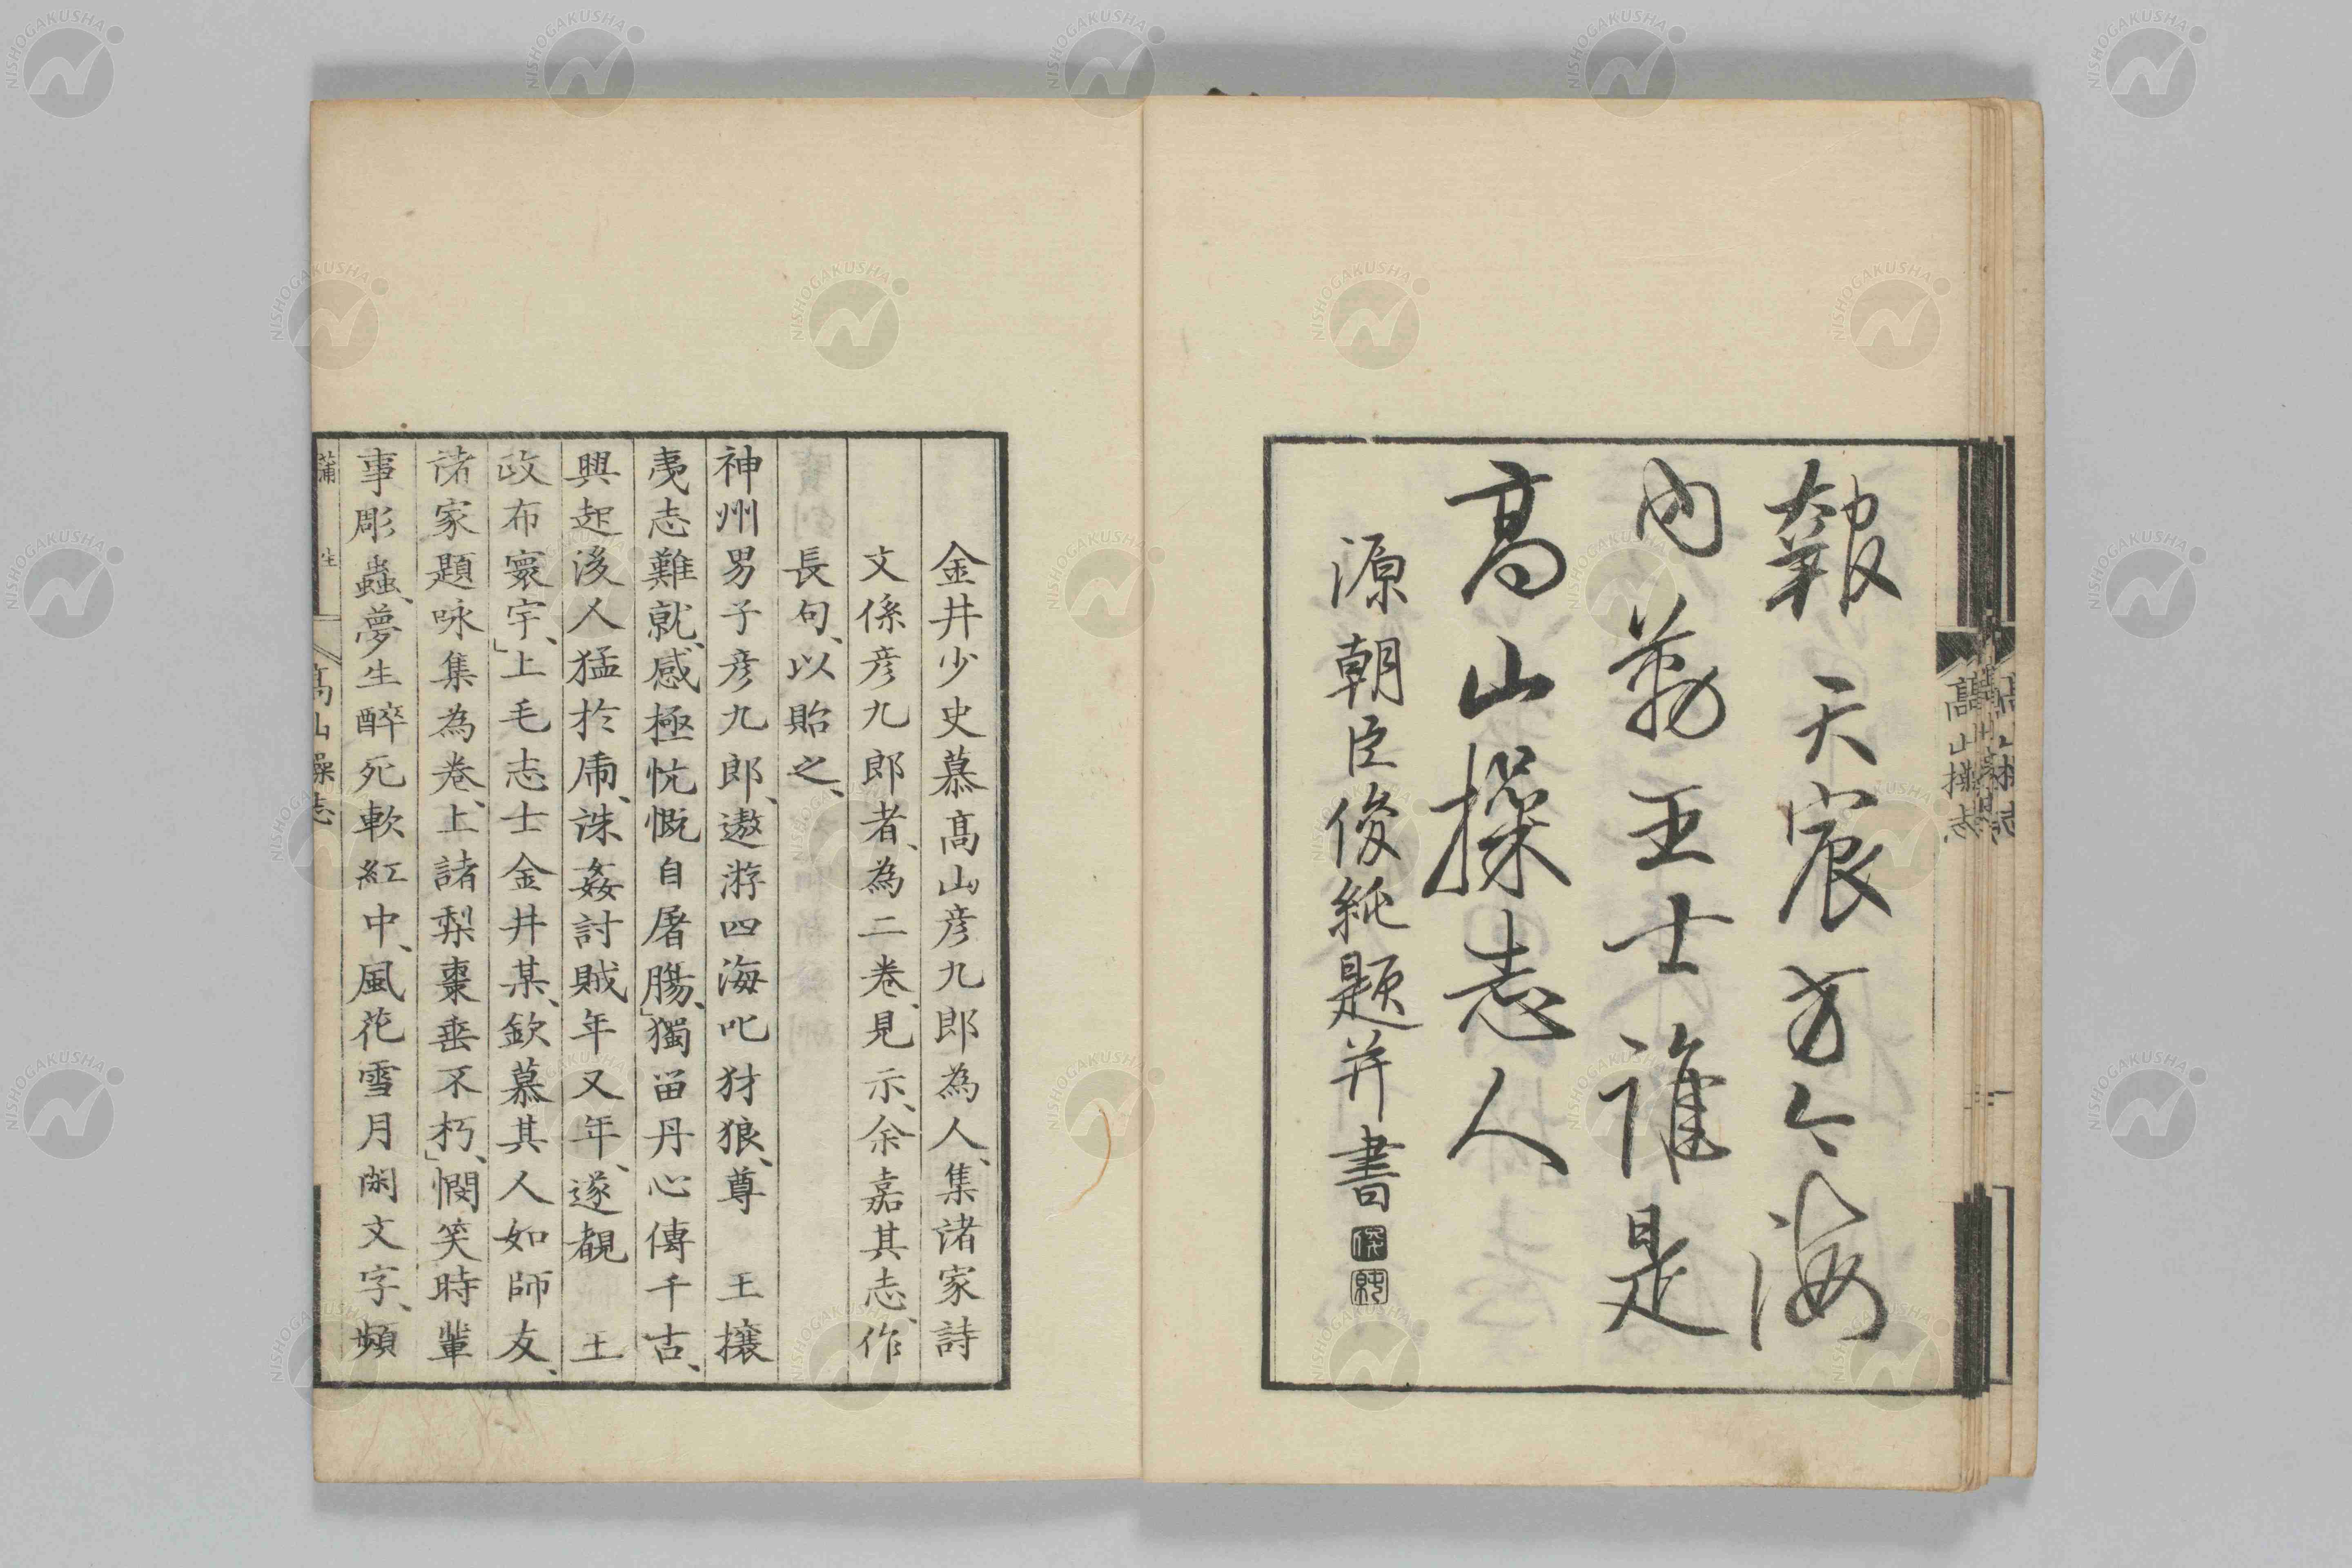 報 天宸方今海
内勤王士誰是
高山操志人
源朝臣俊純題并書
俊純
金井少史慕高山彦九郎為人、集諸家詩
文係彦九郎者、為二巻、見示、余嘉其志、作
長句、以貽之、
神州男子彦九郎、遨游四海叱豺狼、尊 王攘
夷志難就、感極忼慨自屠膓、」獨留丹心傳千古、
興起後人猛於虎、誅姦討賊年又年、遂覩 王
政布寰宇、」上毛志士金井某、欽慕其人如師友、
諸家題咏集為巻、上諸梨棗垂不朽、」憫笑時輩
事彫蟲、夢生醉死軟紅中、風花雪月閑文字、頻
蒲生
高山操志
高山操志
NISHOGAKUSHA